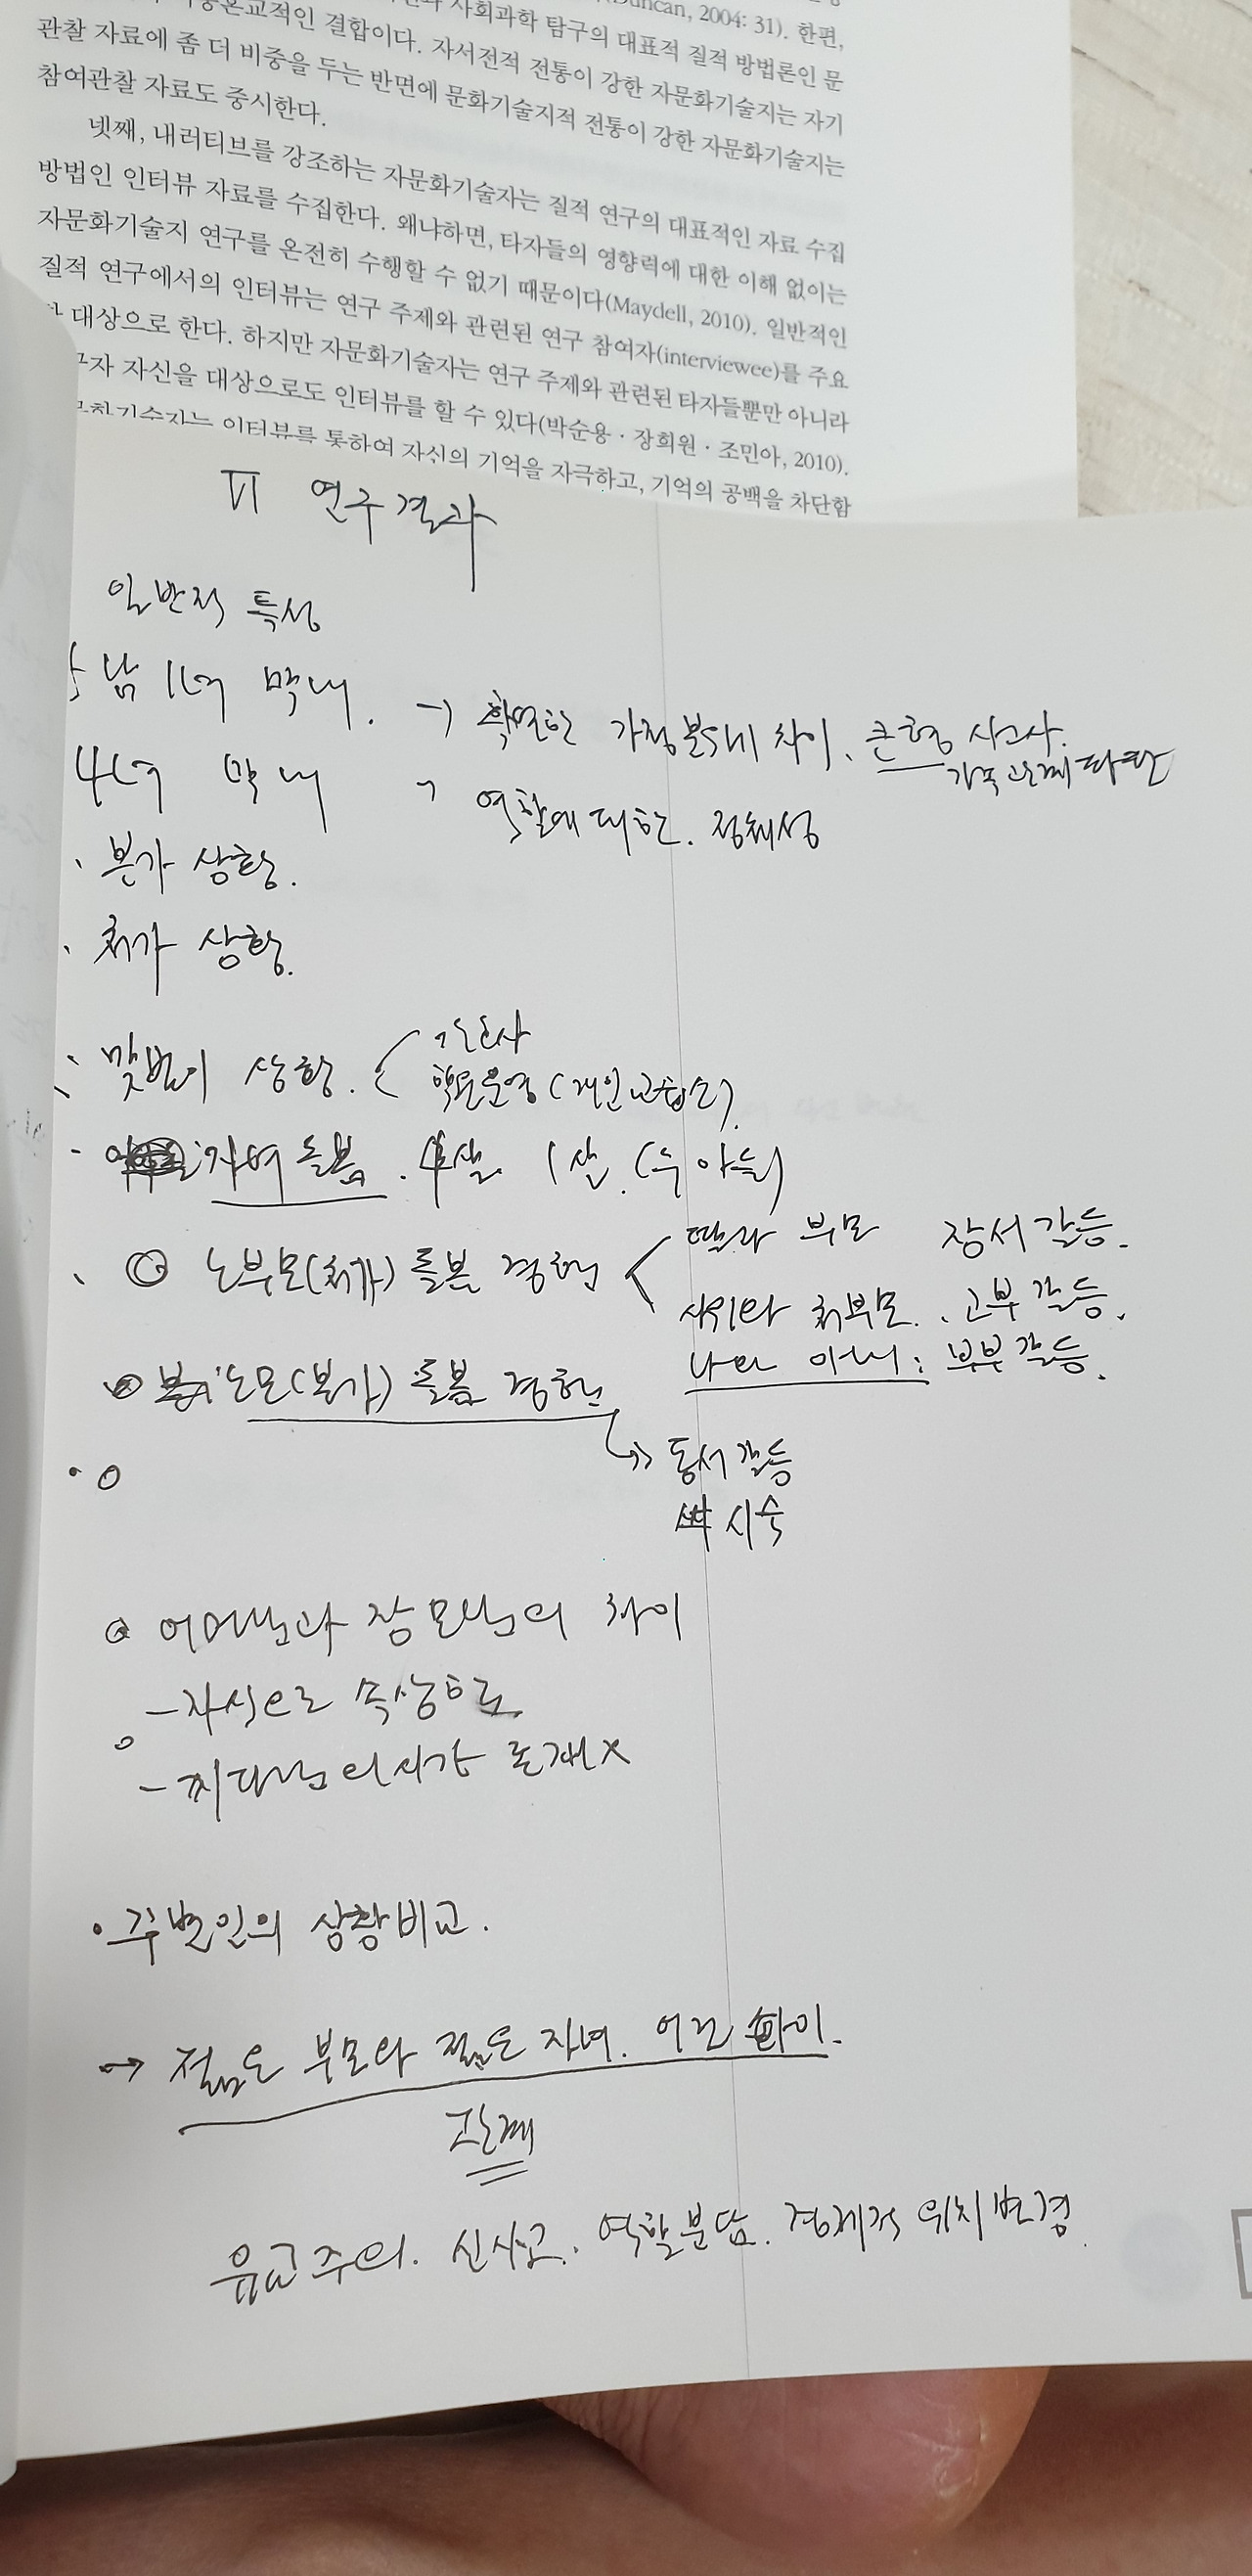 (Duncan, 2004: 31). 한편,
사회과학 탐구의 대표적 질적 방법론인 문
적인 결합이다. 자서전적 전통이 강한 자문화기술지는 자기
관찰 자료에 좀 더 비중을 두는 반면에 문화기술지적 전통이 강한 자문화기술지는
참여관찰 자료도 중시한다.
넷째, 내러티브를 강조하는 자문화기술자는 질적 연구의 대표적인 자료 수집
방법인 인터뷰 자료를 수집한다. 왜냐하면, 타자들의 영향력에 대한 이해 없이는
자문화기술지 연구를 온전히 수행할 수 없기 때문이다(Maydell, 2010). 일반적인
질적 연구에서의 인터뷰는 연구 주제와 관련된 연구 참여자(interviewee)를 주요
대상으로 한다. 하지만 자문화기술자는 연구 주제와 관련된 타자들뿐만 아니라
자신을 대상으로도 인터뷰를 할 수 있다(박순용·장희원·조민아, 2010).
인터뷰를 통하여 자신의 기억을 자극하고, 기억의 공백을 차단함
Ⅵ 연구결과
일반적 특성
남 1녀 막내. → 가정 차이. 큰형 사고사.
가족관계 파탄
4녀 막내 → 역할에 대한. 정체성
· 본가 상황.
· 처가 상황.
· 맞벌이 상황. < 간호사
학원운영(개인교습소)
- 자녀 돌봄. 4살. 1살. (두 아들)
· ◎ 노부모(처가) 돌봄 경험 < 딸과 부모 장서갈등.
사위와 처부모. 고부갈등.
나와 아내: 부부갈등.
◎ 노모(본가) 돌봄 경험
→ 동서갈등
시숙
· ○
◎ 어머님과 장모님의 차이
- 자식으로 속상함
○
- 존재X
· 주변인의 상황비교.
→ 젊은 부모와 젊은 자녀. 어린 아이.
관계
유교주의. 신사고. 역할분담. 경제적 위치변경